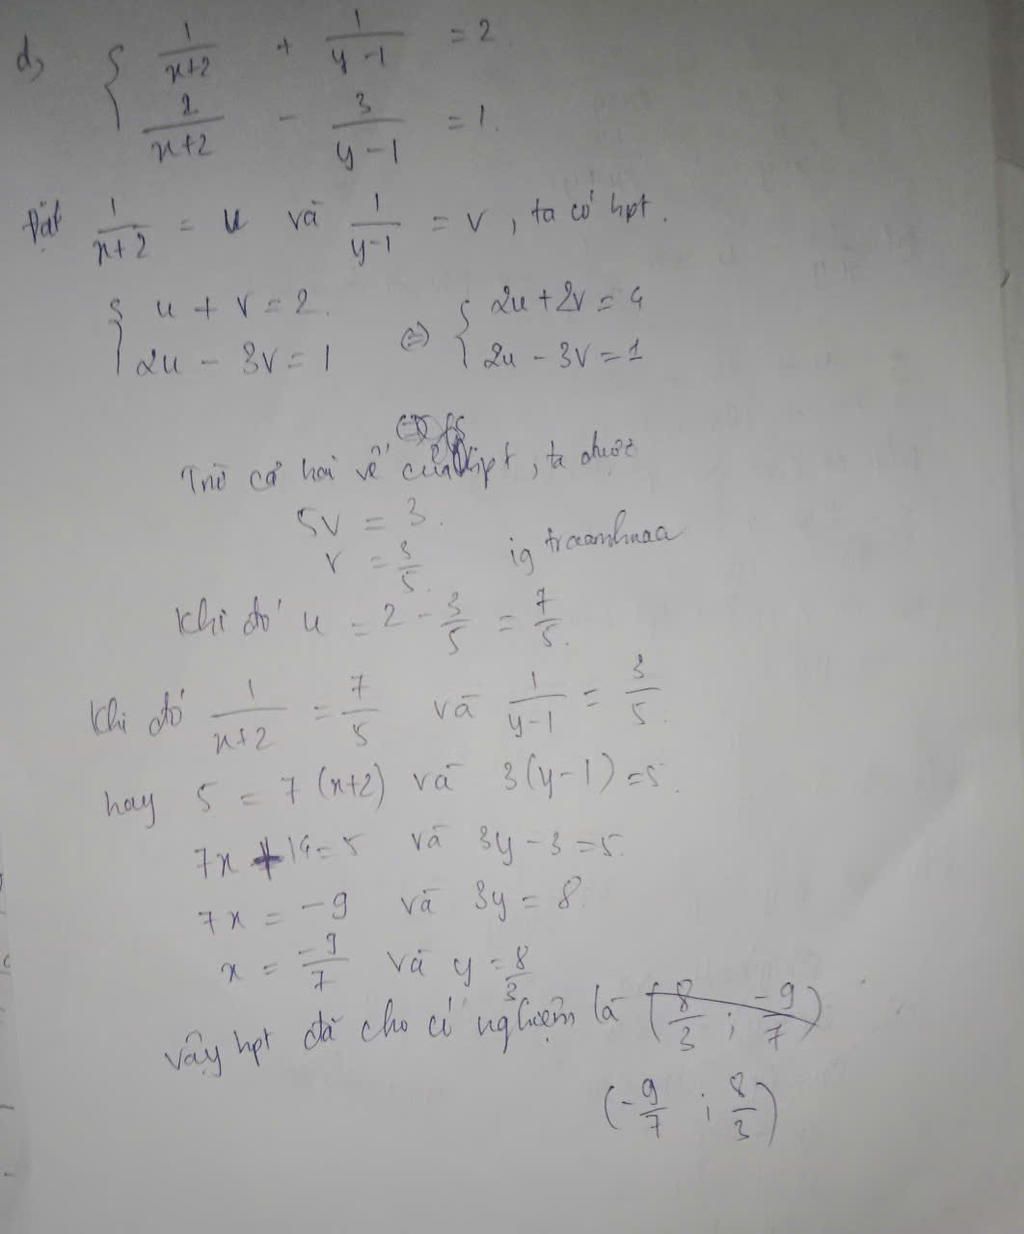 d, { 1/(x+2) + 1/(y-1) = 2
2/(x+2) - 3/(y-1) = 1.
Đặt 1/(x+2) = u và 1/(y-1) = v, ta có hpt.
{ u + v = 2. <=> { 2u + 2v = 4
2u - 3v = 1 2u - 3v = 1
Trừ cả hai vế của hpt, ta được
5v = 3.
v = 3/5. ig traamhnaa
Khi đó u = 2 - 3/5 = 7/5.
Khi đó 1/(x+2) = 7/5 và 1/(y-1) = 3/5.
hay 5 = 7(x+2) và 3(y-1) = 5.
7x + 14 = 5 và 3y - 3 = 5.
7x = -9 và 3y = 8.
x = -9/7 và y = 8/3
Vậy hpt đã cho có nghiệm là (8/3 ; -9/7)
(-9/7 ; 8/3)